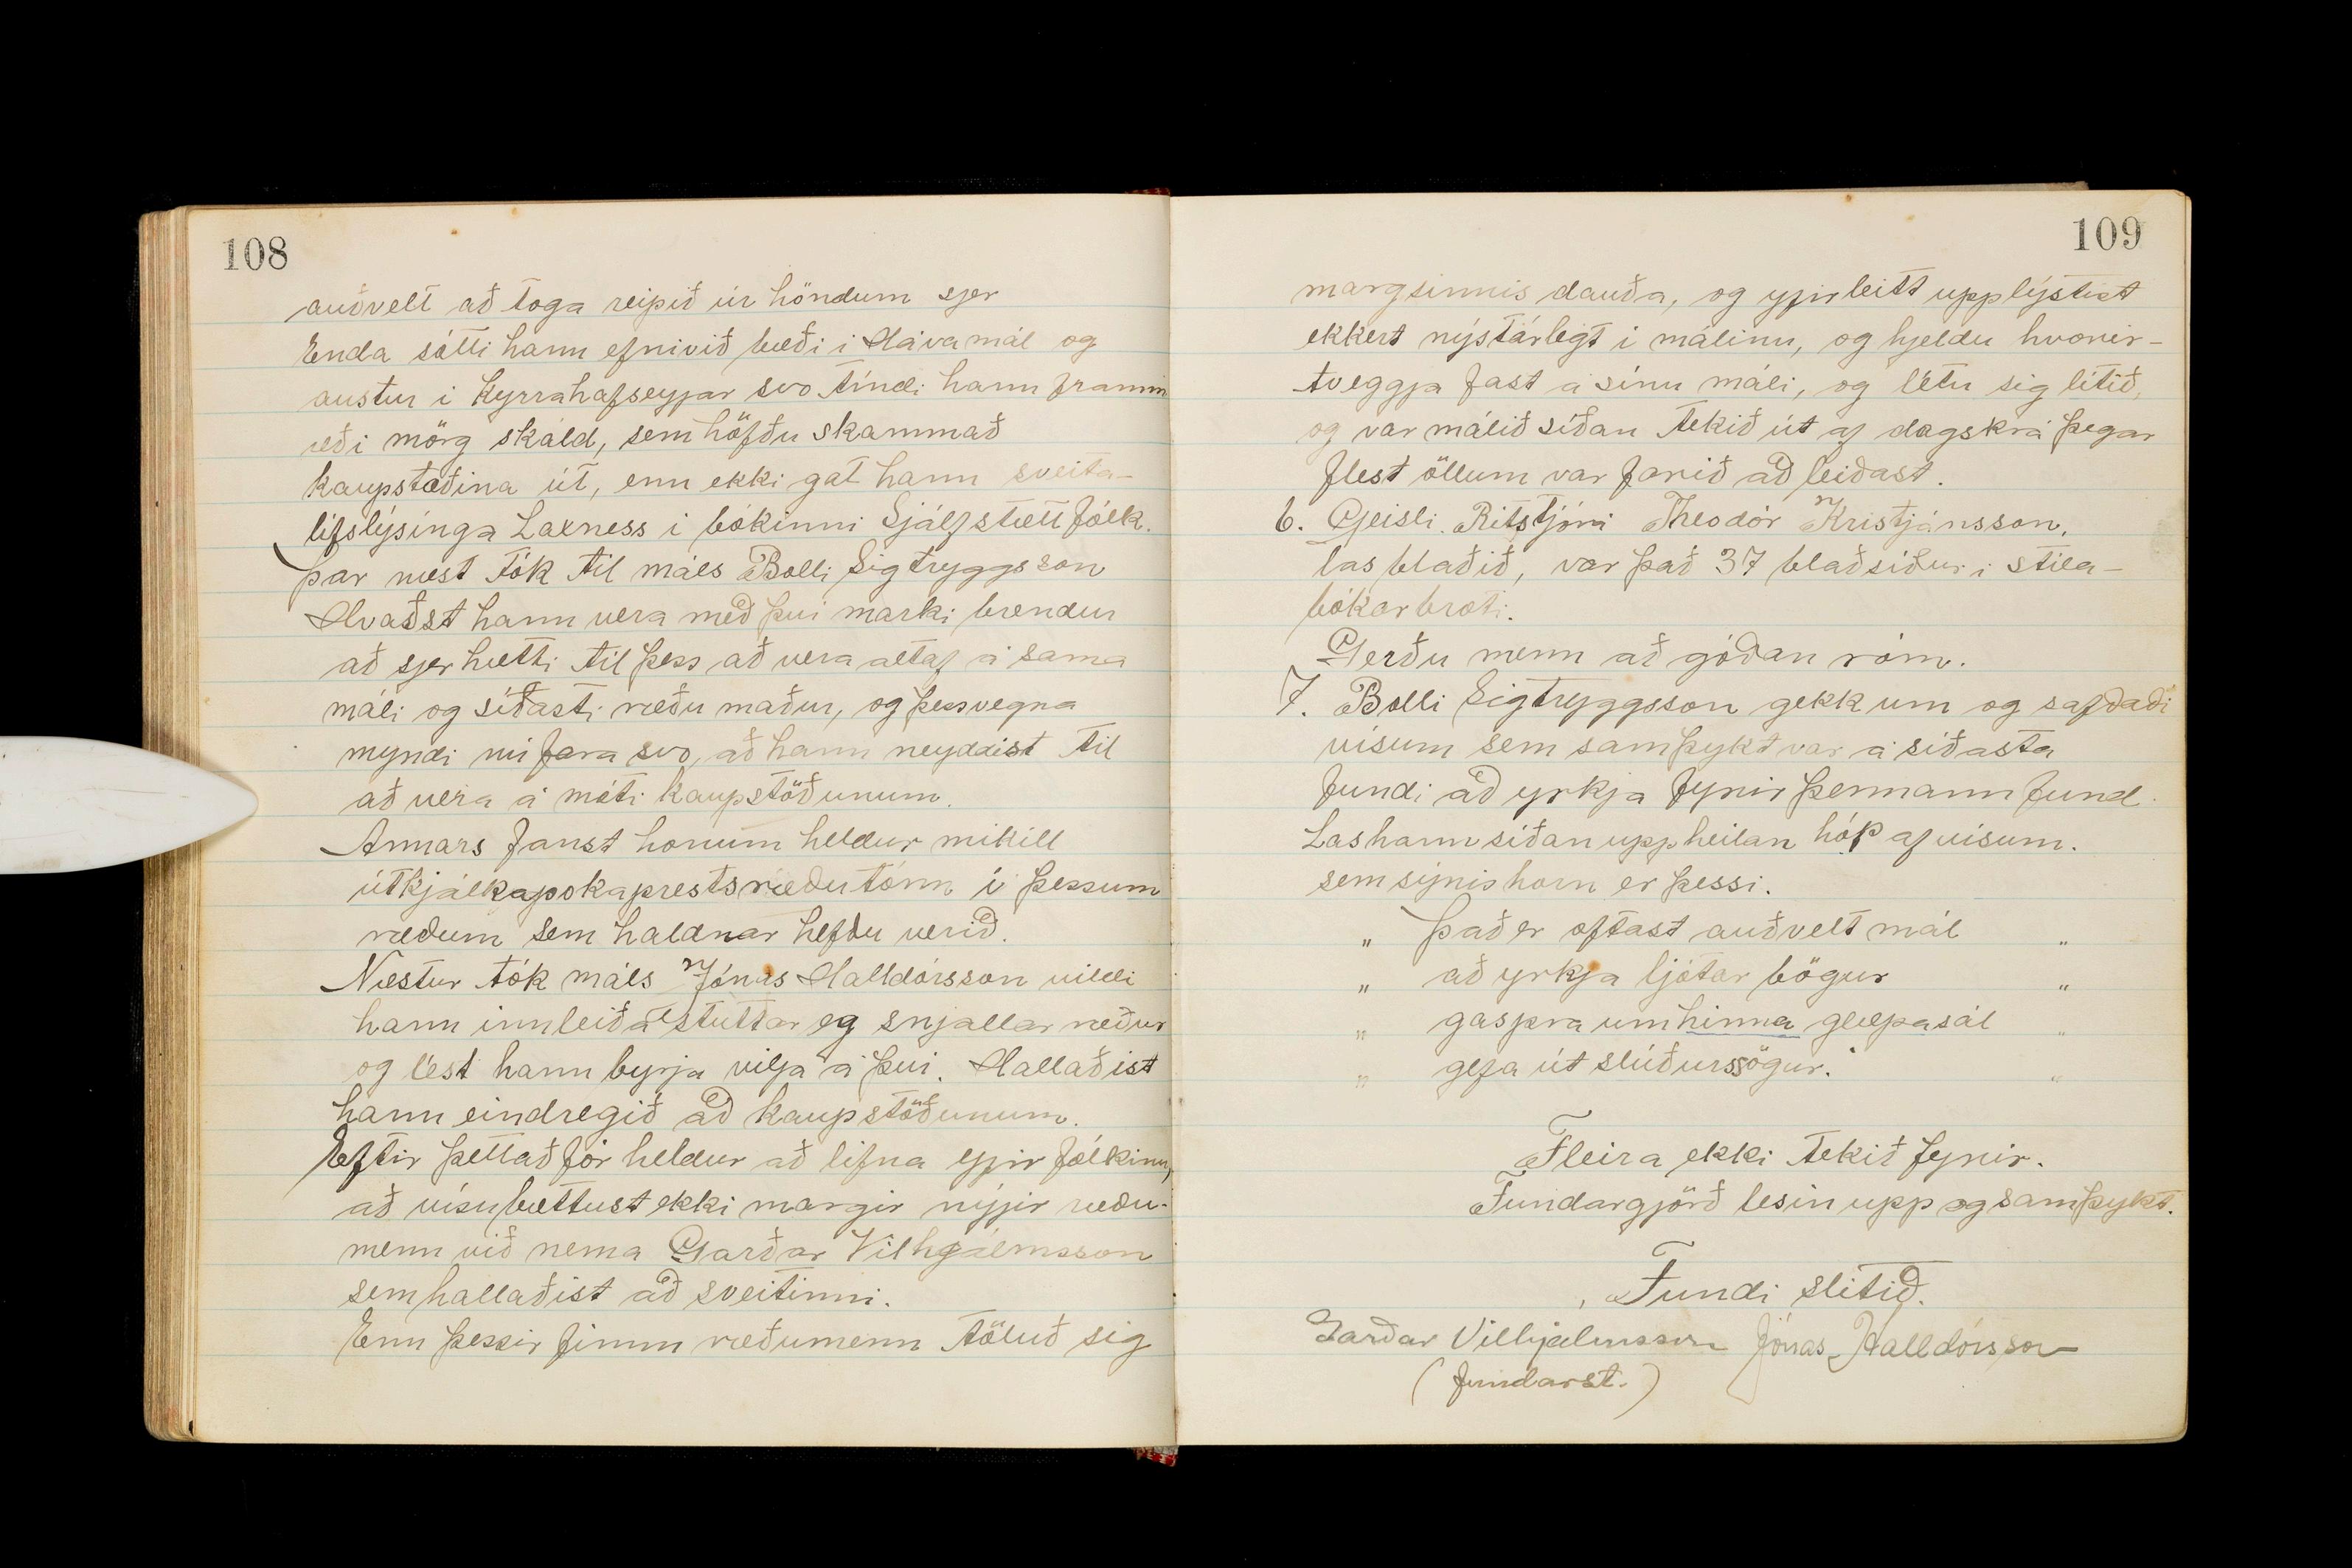 108
auðvelt að toga reipið úr höndum sjer
Enda sótti hann efnivið bæði i Hávamál og
austur i Kyrrahafseyjar svo tíndi hann framm
æði mörg skáld, sem höfðu skammað
kaupstaðina út, enn ekki gat hann sveita-
lifslýsinga Laxness i bókinni Sjálfstætt fólk.
þar næst tók til máls Bolli Sigtryggsson
Hvaðst hann vera með þvi marki brendur
að sjer hætti til þess að vera altaf á sama
máli og síðasti ræðu maður, og þessvegna
myndi nú fara svo, að hann neyddist til
að vera á móti kaupstöðunum.
Annars fanst honum heldur mikill
útkjálkapokaprestsræðutónn i þessum
ræðum sem haldnar hefðu verið.
Næstur tók máls Jónas Halldórsson vildi
hann innleiða stuttar og snjallar ræður
og lést hann byrja vilja á þvi. Hallaðist
hann eindregið að kaupstöðunum.
Eftir þettað fór heldur að lifna yfir fólkinu,
að visu bættust ekki margir nýjir ræðu-
menn við nema Garðar Vilhjálmsson
sem hallaðist að sveitinni.
Enn þessir fimm ræðumenn töluð sig
109
margsinnis dauða, og yfirleitt upplýstist
ekkert nýstárlegt i málinu, og hjeldu hvorir-
tveggja fast á sínu máli, og létu sig lítið,
og var málið síðan tekið út af dagskrá þegar
flest öllum var farið að leiðast.
6. Geisli. Ritstjóri Theodór Kristjánsson,
las blaðið, var það 37 blaðsiður i stila-
bókarbroti.
Gerðu menn að góðan róm.
7. Bolli Sigtryggsson gekk um og safðaði
visum sem samþykt var á síðasta
fundi að yrkja fyrir þennann fund.
Las hann síðan upp heilan hóp af visum.
sem sýnishorn er þessi.
„ það er oftast auðvelt mál „
„ að yrkja ljótar bögur „
„ gaspra um hinna glæpasál „
„ gefa út slúðurssögur." „
Fleira ekki tekið fyrir.
Fundargjörð lesin upp og samþykt.
Fundi slitið.
Garðar Vilhjálmsson Jónas Halldórsson
(fundarst.)